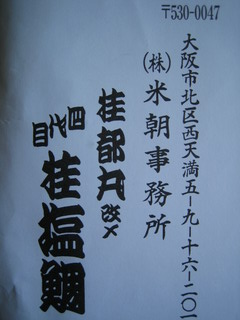 〒530-0047
大阪市北区西天満五-九-十六-二〇一
(株)米朝事務所
桂都丸改メ
四代目
桂塩鯛